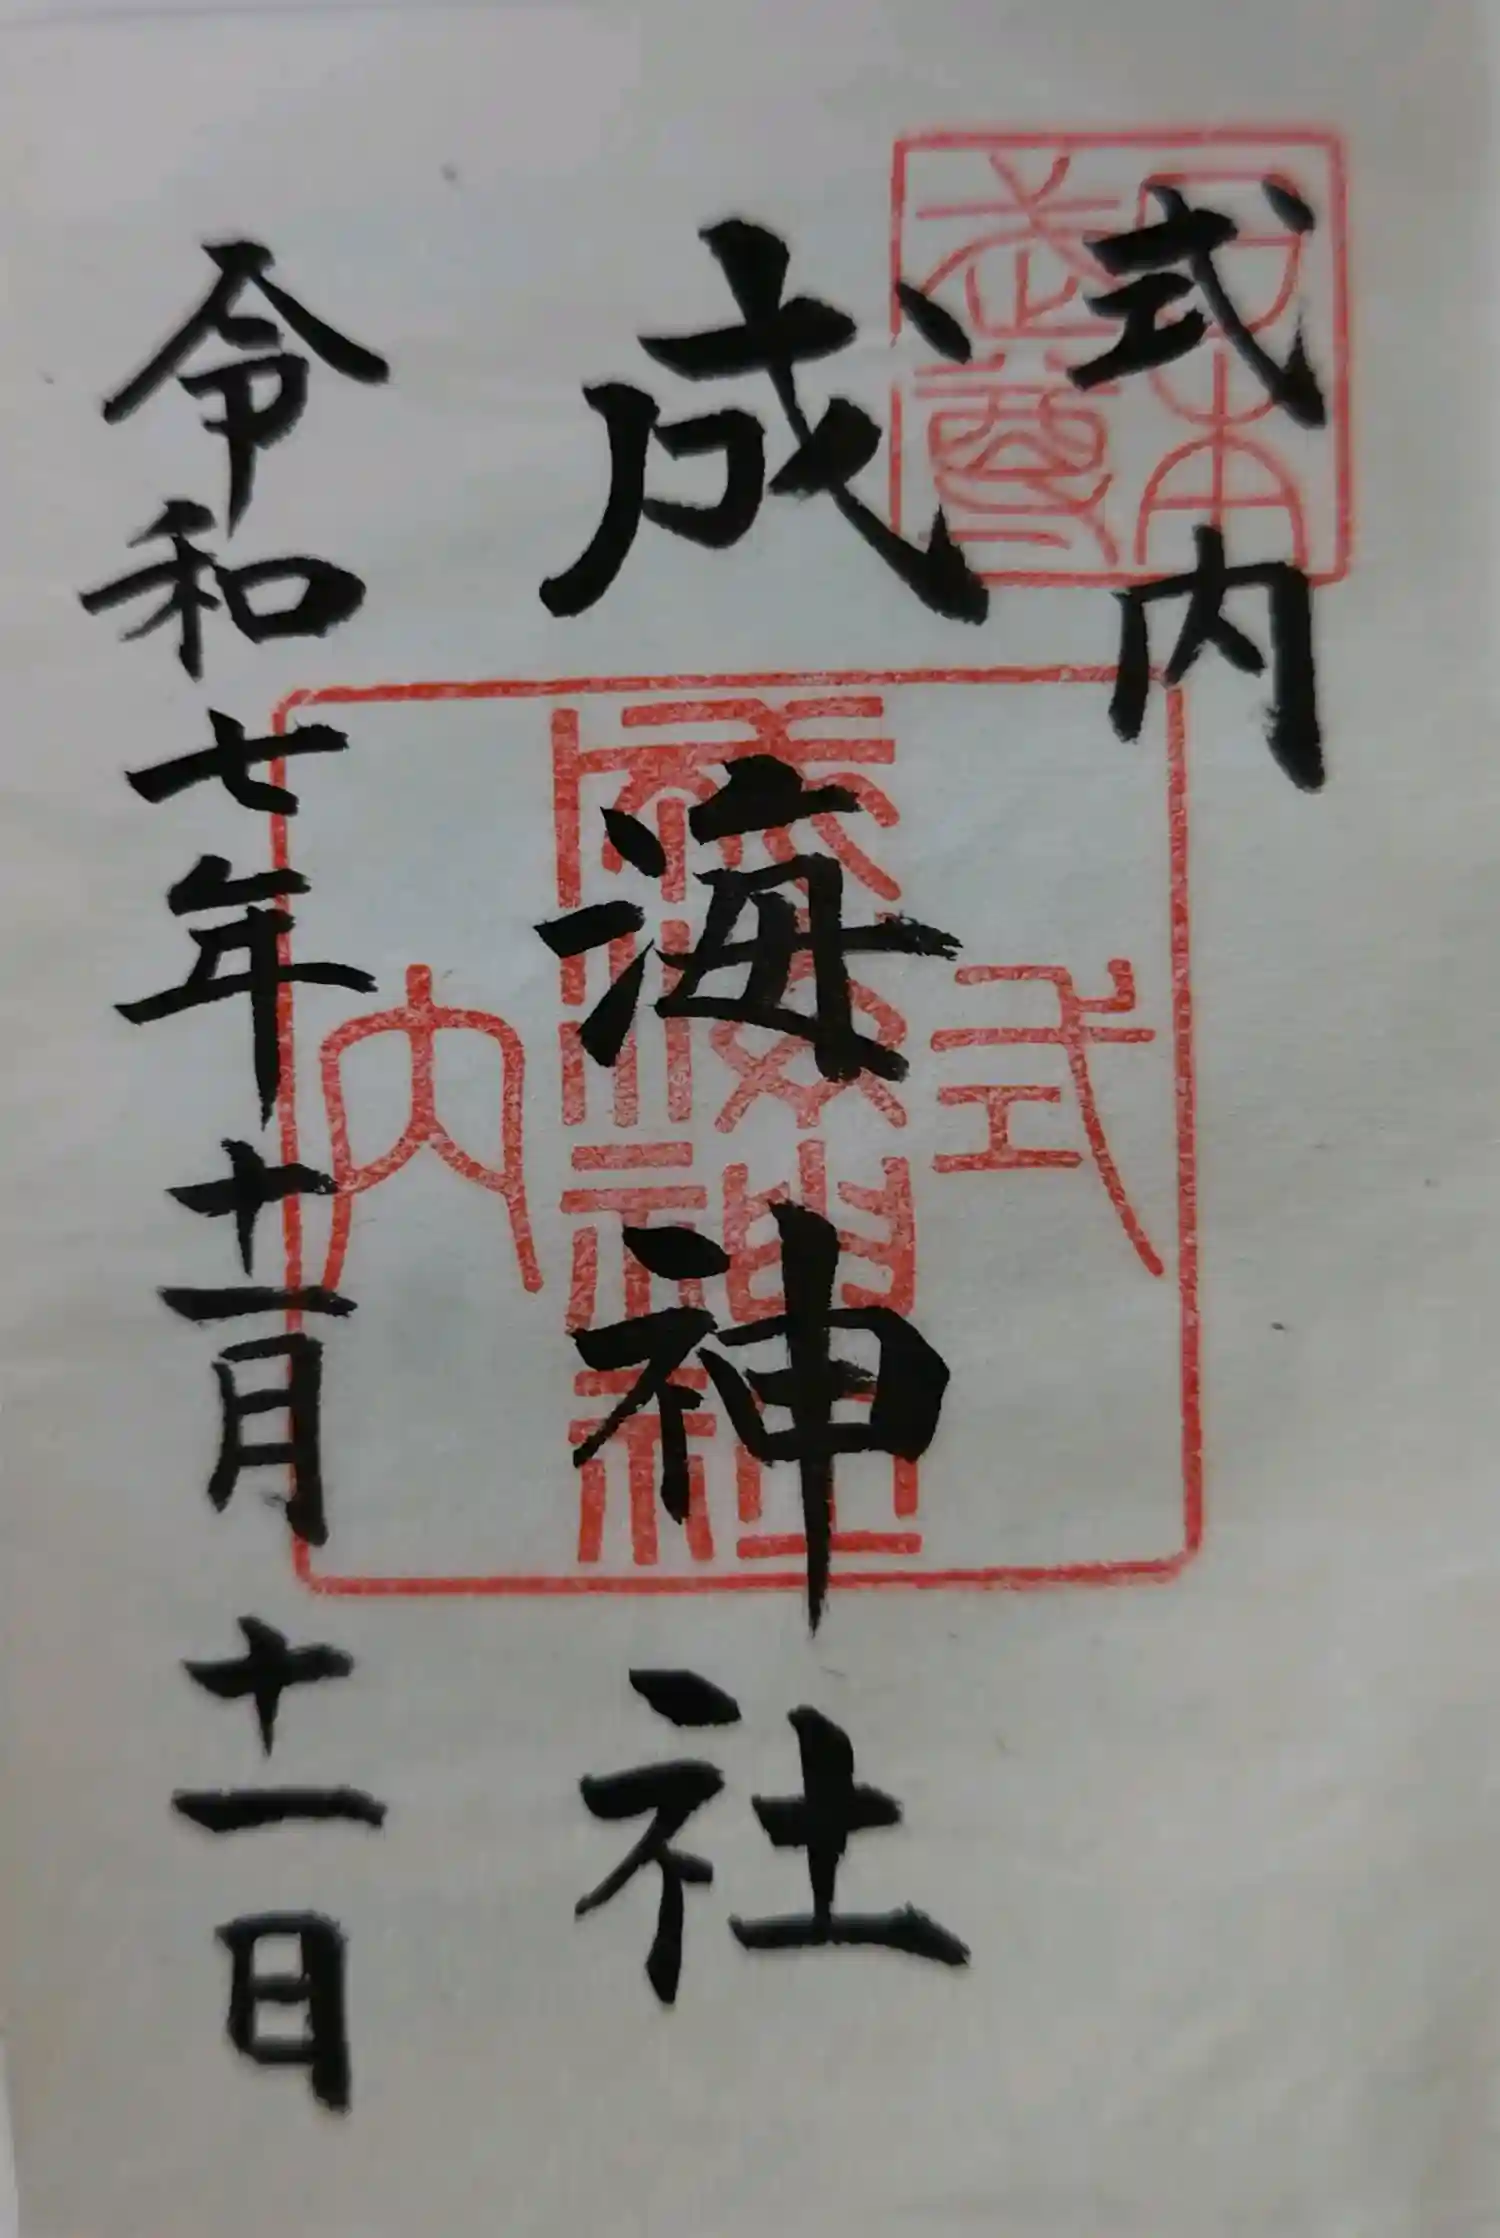 式内
成海神社
令和七年十一月十一日
日本武尊
式内
成海神社